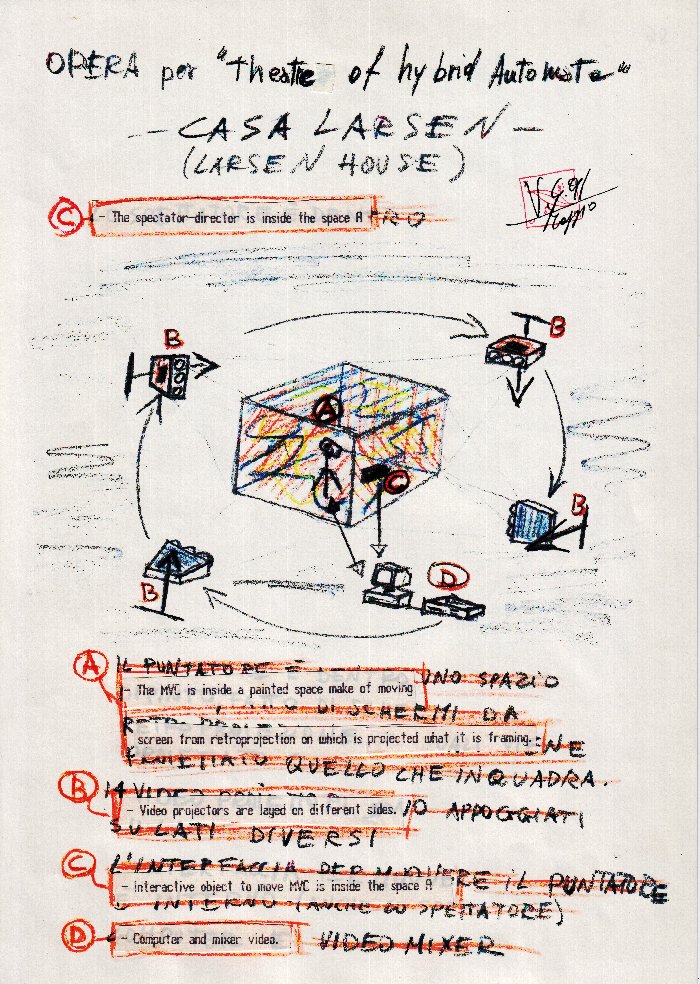 OPERA per "Theatre of hybrid Automata"
- CASA LARSEN -
(LARSEN HOUSE)
C - The spectator-director is inside the space A
B B
A
C
B
D
B
A IL PUNTATORE È UNO SPAZIO
- The MVC is inside a painted space make of moving
DI SCHERMI DA
screen from retroprojection on which is projected what it is framing.
QUELLO CHE INQUADRA.
B I 4 VIDEO
- Video projectors are layed on different sides. APPOGGIATI
SU LATI DIVERSI
C L'INTERFACCIA PER MUOVERE IL PUNTATORE
- interactive object to move MVC is inside the space A
INTERNO (ANCHE LO SPETTATORE)
D - Computer and mixer video. VIDEO MIXER